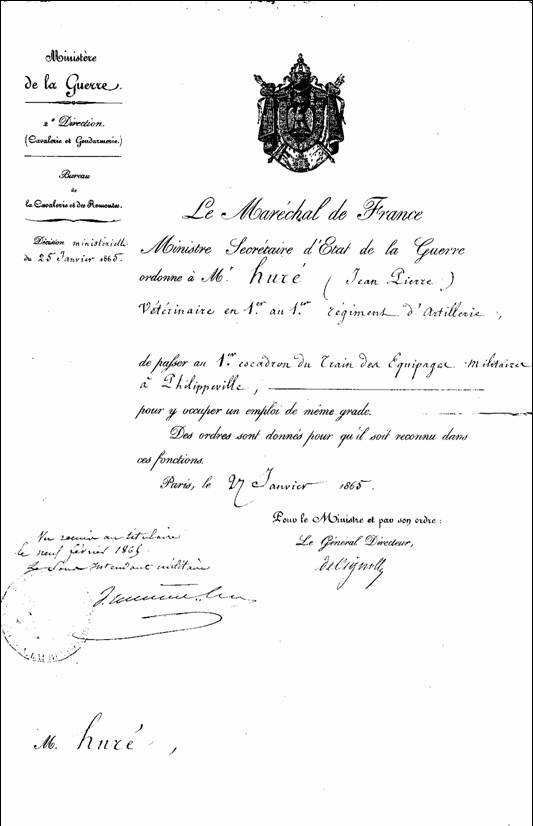 Ministère
de la Guerre.
2e Direction.
(Cavalerie et Gendarmerie.)
Bureau
de
la Cavalerie et des Remontes.
Décision ministérielle
du 25 Janvier 1865.
Le Maréchal de France
Ministre Secrétaire d'État de la Guerre
ordonne à Mr. huré (Jean Pierre)
Vétérinaire en 1er au 1er régiment d'Artillerie,
de passer au 1er escadron du Train des Équipages militaires
à Philippeville,
pour y occuper un emploi de même grade.
Des ordres sont donnés pour qu'il soit reconnu dans
ces fonctions.
Paris, le 27 Janvier 1865.
Pour le Ministre et par son ordre :
Le Général Directeur,
Vu remis au titulaire
le neuf février 1865
Le Sous Intendant militaire
M. huré,